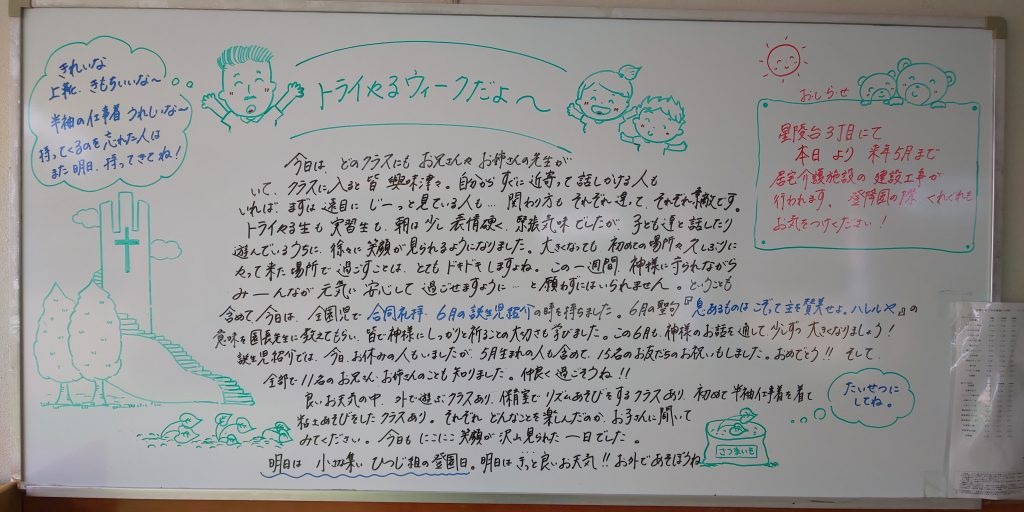 きれいな
上靴、きもちいいな〜
半袖の仕事着 うれしいな〜
持ってくるのを忘れた人は
また明日、持ってきてね!
トライやるウィークだよ〜
おしらせ
星陵台3丁目にて
本日より 来年5月まで
居宅介護施設の建設工事が
行われます。登降園の際 くれぐれも
お気をつけください!
今日は、どのクラスにも お兄さんや お姉さんの先生が
いて、クラスに入ると皆 興味津々。自分からすぐに近寄って話しかける人も
いれば、まずは遠目に じーっと見ている人も… 関わり方も それぞれ違って、それぞれ素敵です。
トライやる生も 実習生も、朝は少し 表情硬く、緊張気味でしたが、子ども達と話したり
遊んでいるうちに、徐々に笑顔が見られるようになりました。大きくなっても 初めての場所や久しぶりに
やって来た場所で 過ごすことは、とても ドキドキしますよね。この一週間、神様に守られながら
みーんなが 元気に 安心して 過ごせますように…と願わずにはいられません。ということも
含めて 今日は、全園児で 合同礼拝・6月の誕生児紹介の時を持ちました。6月の聖句『息あるものは こぞって 主を賛美せよ。ハレルヤ』の
意味を園長先生に教えてもらい、皆で神様にしっかりと祈ることの大切さも学びました。この6月も、神様のお話を通して 少しずつ 大きくなりましょう!
誕生児紹介では、今日、お休みの人もいましたが、5月生まれの人も含めて、15名のお友だちのお祝いもしました。おめでとう!! そして、
全部で11名のお兄さん・お姉さんのことも知りました。仲良く過ごそうね!!
良いお天気の中、外で遊ぶクラスあり、保育室で リズムあそびをするクラスあり、初めて半袖仕事着を着て
粘土あそびをしたクラスあり。それぞれ どんなことを楽しんだのか、お子さんに聞いて
みてください。今日も にこにこ笑顔が 沢山見られた一日でした。
たいせつに
してね。
さつまいも
明日は 小羊集い ひつじ組の登園日。明日は きっと良いお天気!! お外であそぼうね